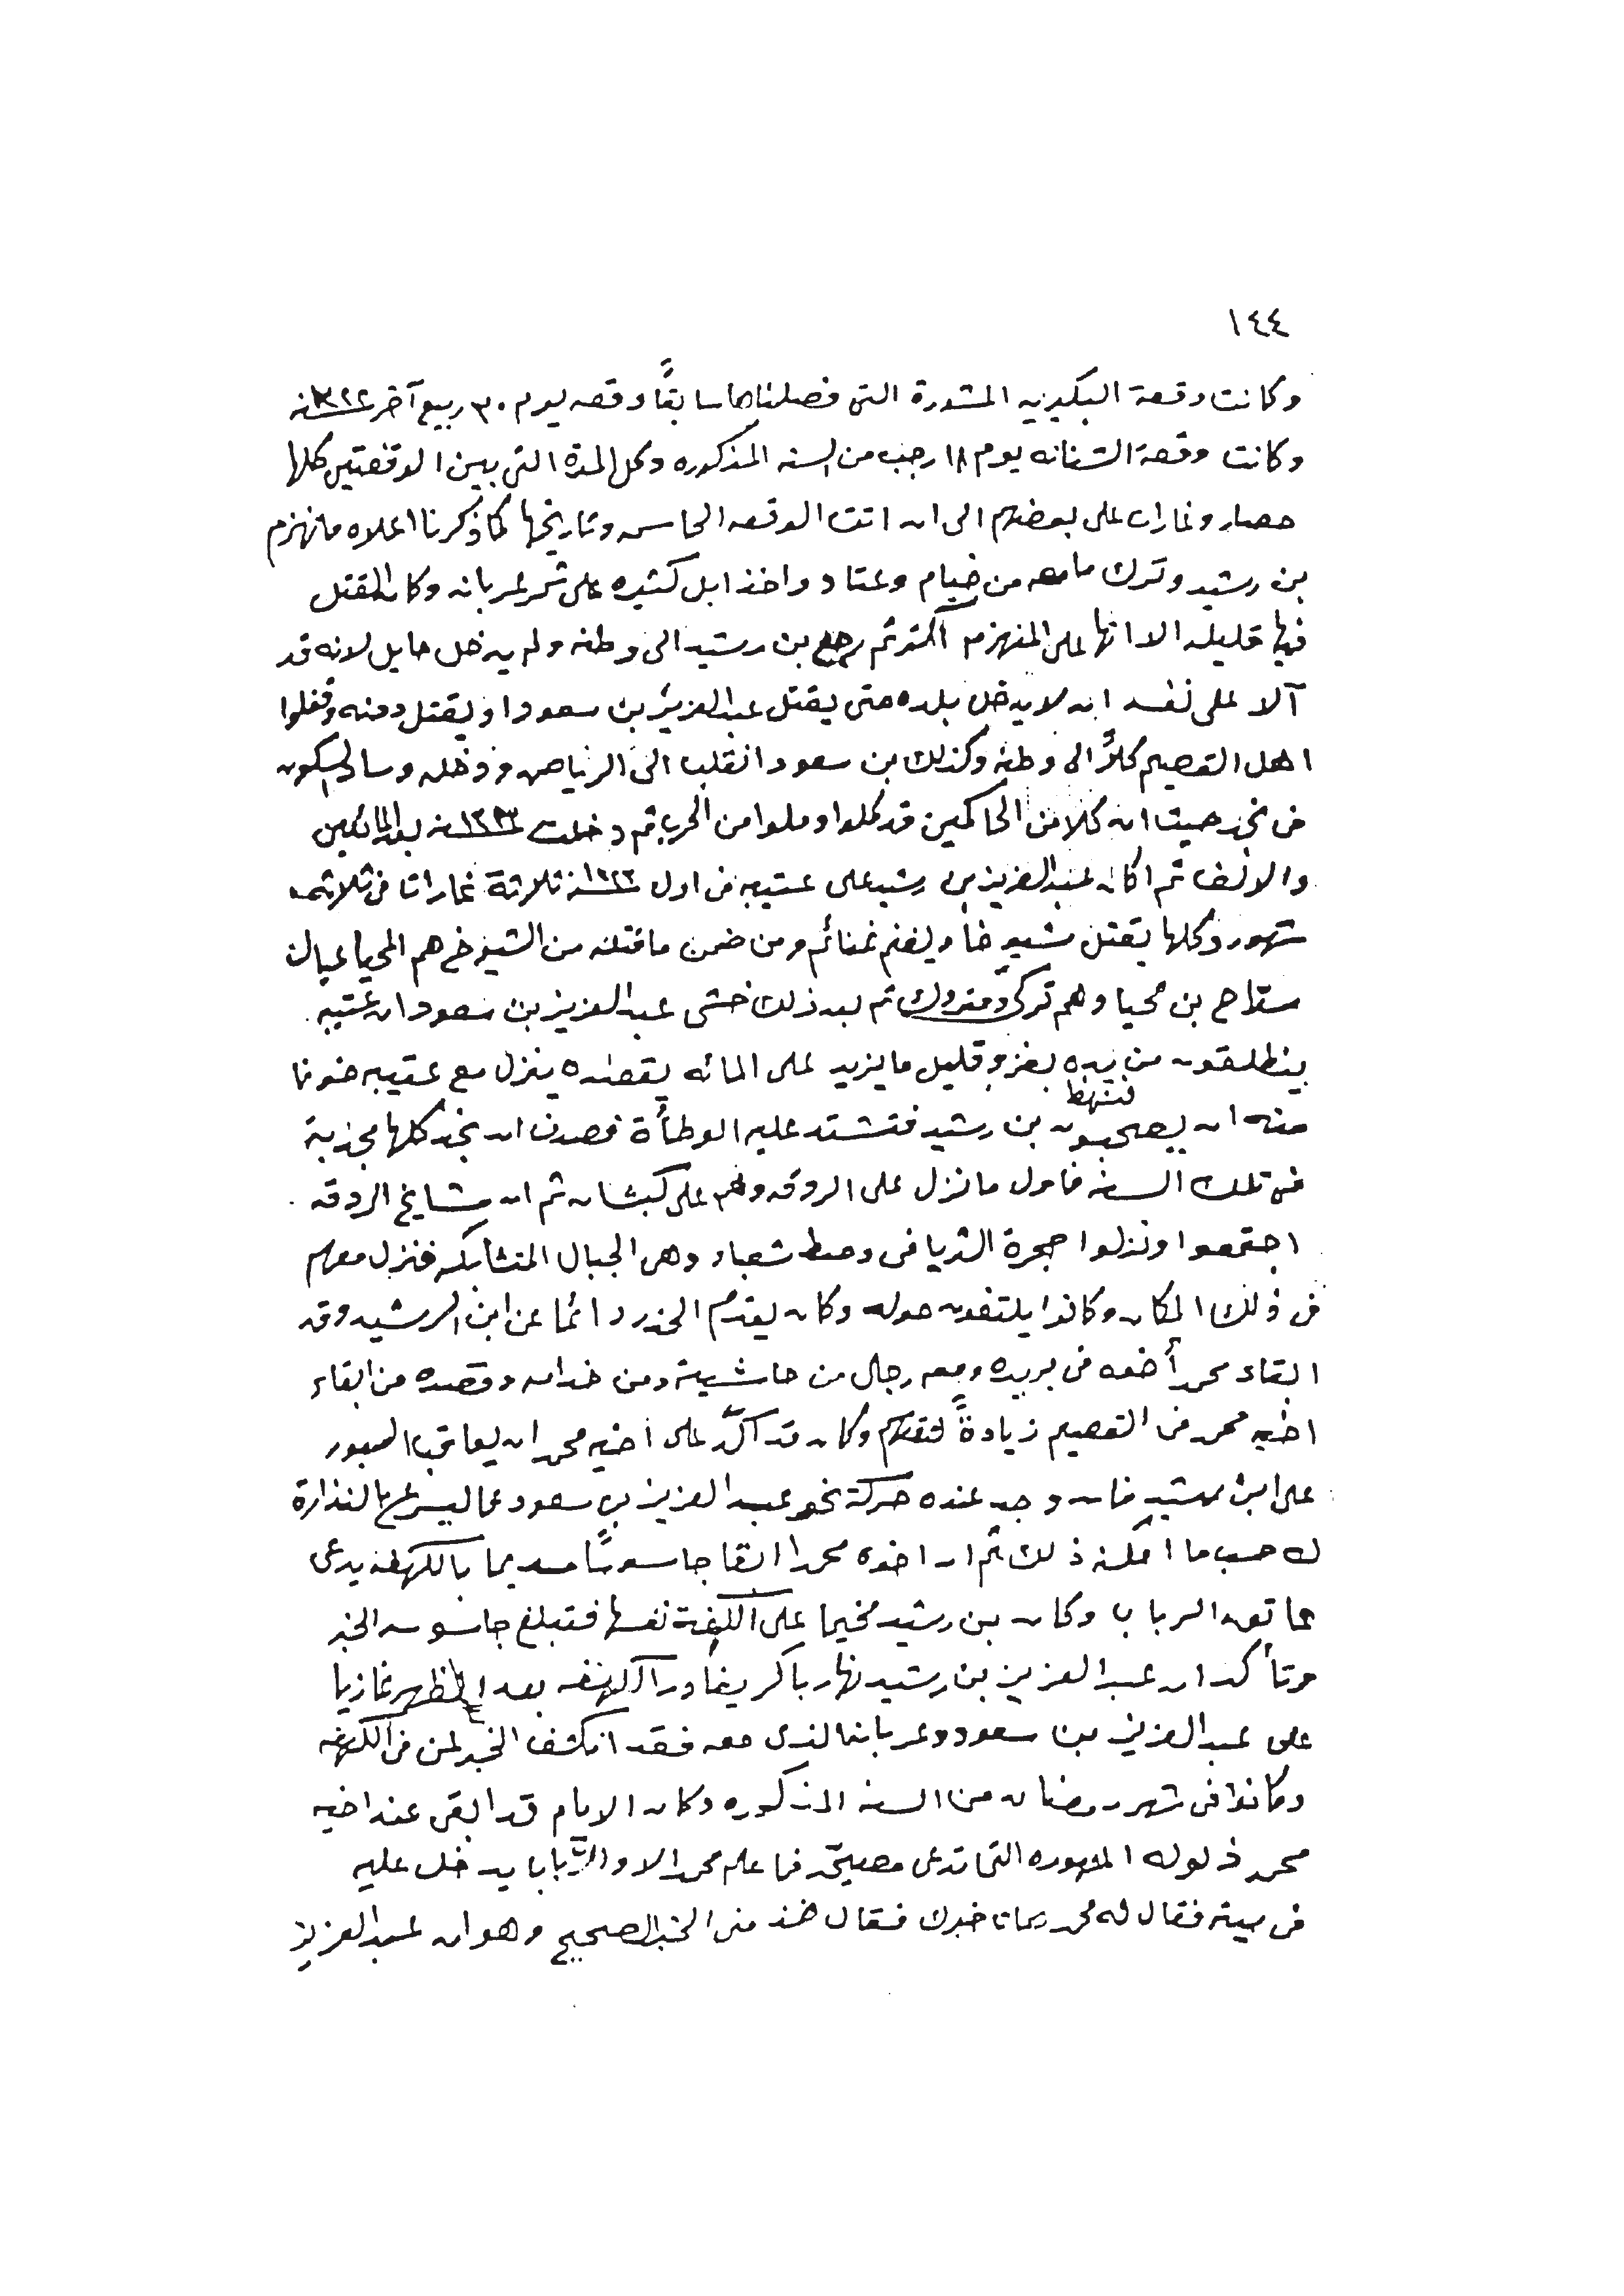 ١٤٤
وكانت وقعة البكيريه المشهورة التي فصلناها سابقاً وقعه يوم ٣٠ ربيع آخر سنة ١٣٢٢
وكانت وقعة الشنانه يوم ١٨ رجب من السنه المذكوره وكل المدة التي بين الوقعتين كلها
حصار وغارات على بعضهم الى ان اتت الوقعه الحاسمه وتاريخها كما ذكرنا اعلاه فانهزم
بن رشيد وترك مامعه من خيام وعتاد واخذ ابل كثيره على شمر عربانه وكان المقتل
فيها قليله الا انها على المنهزم اكثر ثم رجع بن رشيد الى وطنه ولم يدخل حايل لانه قد
آلا على نفسه انه لا يدخل بلده حتى يقتل عبدالعزيز بن سعود او يقتل دونه وقفلوا
اهل القصيم كلاً الى وطنه وكذلك بن سعود انقلب الى الرياض ودخله وساد السكون
في نجد حيث ان كلا من الحاكمين قد كلوا وملوا من الحرب ثم دخلت سنة ١٣٢٣ بعد المائتين
والالف ثم اكان عبدالعزيز بن رشيد على عتيبه في اول سنة ١٣٢٣ ثلاثة غارات في ثلاثة
شهور وكلها يقتل شيوخا ويغنم غنائم ومن ضمن ما قتله من الشيوخ هم المحيا عيال
سقاح بن محيا وهم تركي ومتروك ثم بعد ذلك خشي عبدالعزيز بن سعود ان عتيبه
ينطلقون من يده بغزو قليل مايزيد على المائه يقصده ينزل مع عتيبه خوفا
فتنهظ
منه ان يصحبون بن رشيد فتشتد عليه الوطأة فصدف ان نجد كلها مجذبة
في تلك السنه فاول مانزل على الروقه وهم على كبشان ثم ان مشايخ الروقه
اجتمعوا ونزلوا هجرة الثريا في وسط شعباء وهي الجبال المتشابكه فنزل معهم
في ذلك المكان وكانوا يلتفون حوله وكان يقدم الحذر دائما عن ابن الرشيد وقد
ابقاء محمد أخوه في بريده ومعه رجال من حاشيته ومن خدامه وقصده من ابقاء
اخيه محمد في القصيم زيادةً لثقتهم وكان قد اكّد على اخيه محمد ان يعاقب السبور
على ابن رشيد فان وجد عنده حركة نحو عبدالعزيز بن سعود عما ليسرع بالنذارة
له حسب ما امكنه ذلك ثم ان اخوه محمد ابقا جاسوسًا مديما بالكهفه يدعى
عاتق الرباب وكان بن رشيد مخيما على الكهفة نفسها فتبلغ جاسوسه الخبر
وتأكد ان عبدالعزيز بن رشيد نهار باكر يغادر الكهفه بعد الظهر غازيا
على عبدالعزيز بن سعود وعربانه الذي معه فقد انكشف الخبر لمن في الكهفه
وكانوا في شهر رمضان من السنه المذكوره وكان الامام قد ابقى عند اخيه
محمد ذلوله المشهوره التي تدعى مصيحّه فما علم محمد الا والربّاب يدخل عليه
في بيته فقال له محمد هات خبرك فقال خذ مني الخبر الصحيح وهو ان عبدالعزيز